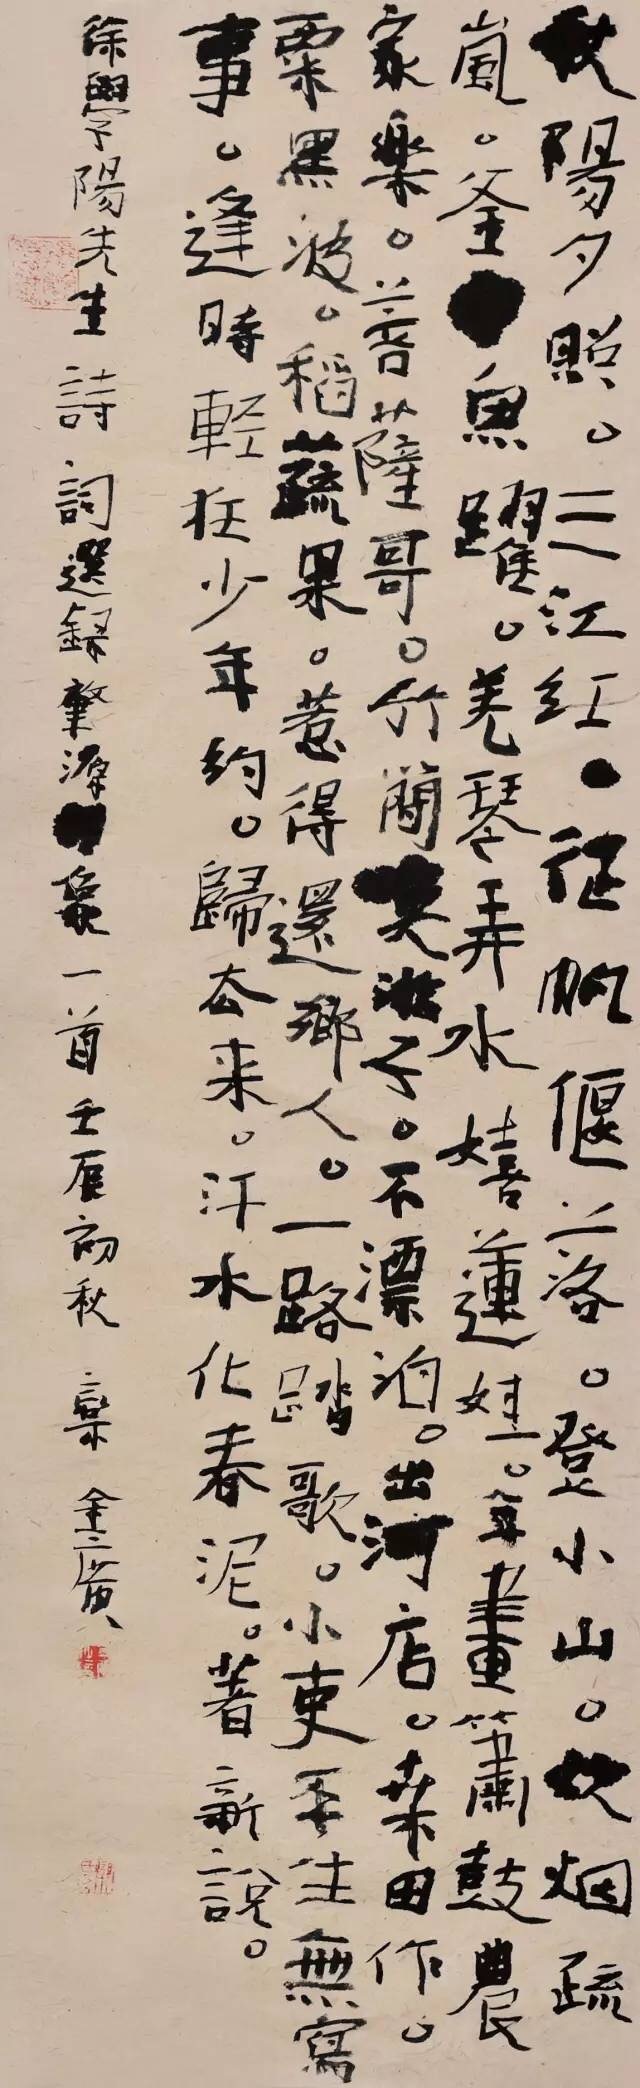 秋陽夕照。三江紅・征帆偃落。登小山。炊烟疏
嵐。釜魚躍。羌琴弄水嬉蓮娃。年畫簫鼓農
家樂。菩薩哥。竹蘭笑游子。不漂泊。出河店。桑田作。
粟黑波。稻蔬果。惹得還鄉人。一路踏歌。小吏吾生無寫
事。逢時輕狂少年約。歸去来。汗水化春泥。著新說。
徐學陽先生詩詞選録肇源象一首壬辰初秋 金廣